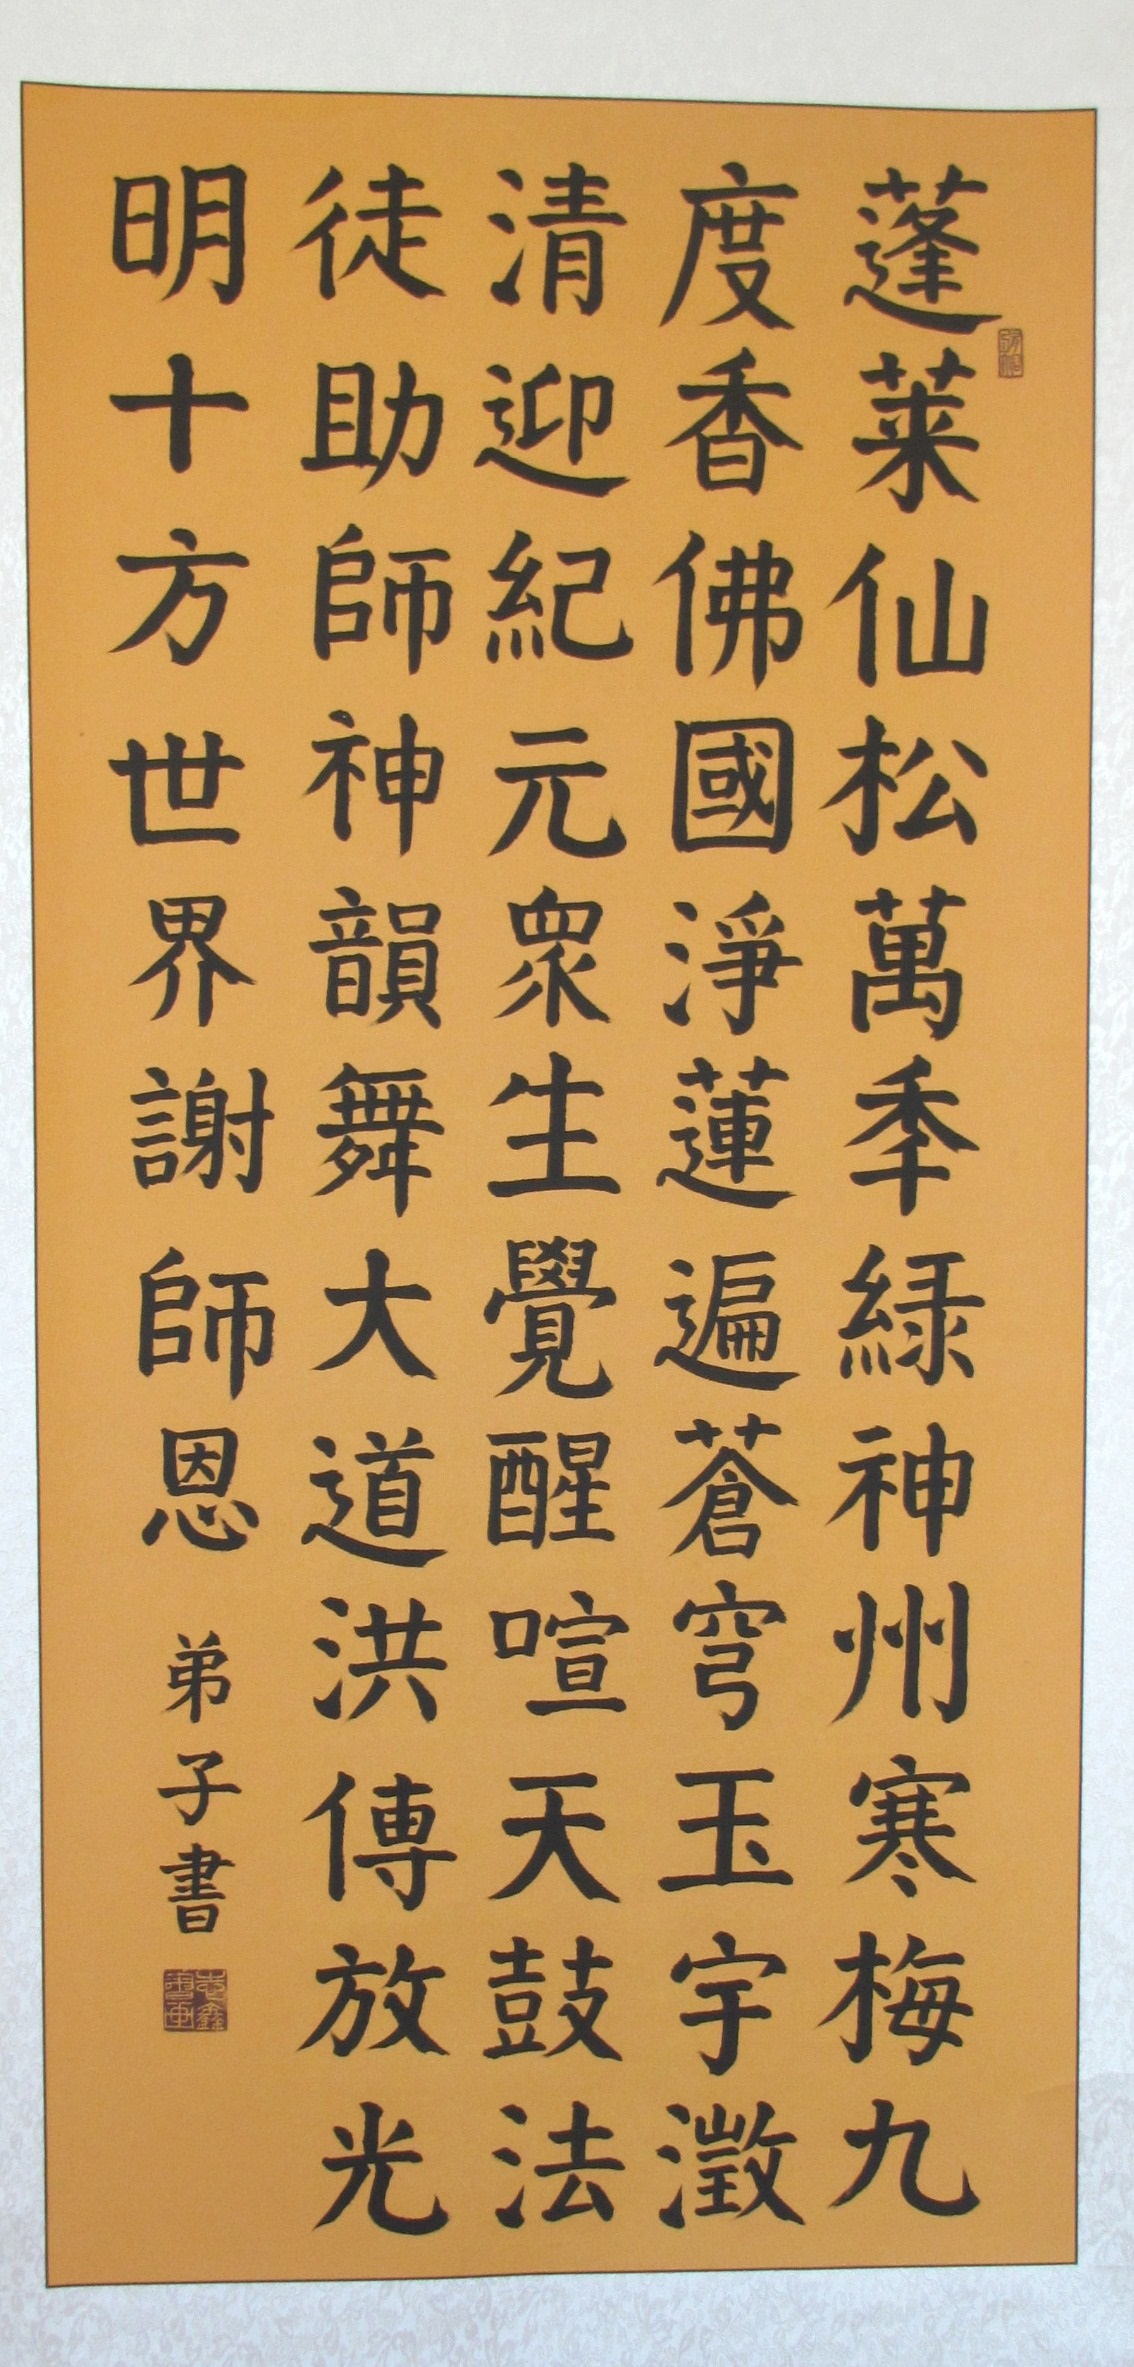 蓬萊仙松萬秊緑神州寒梅九
度香佛國淨蓮遍蒼穹玉宇澂
清迎紀元眾生覺醒喧天鼓法
徒助師神韻舞大道洪傳放光
明十方世界謝師恩
弟子書